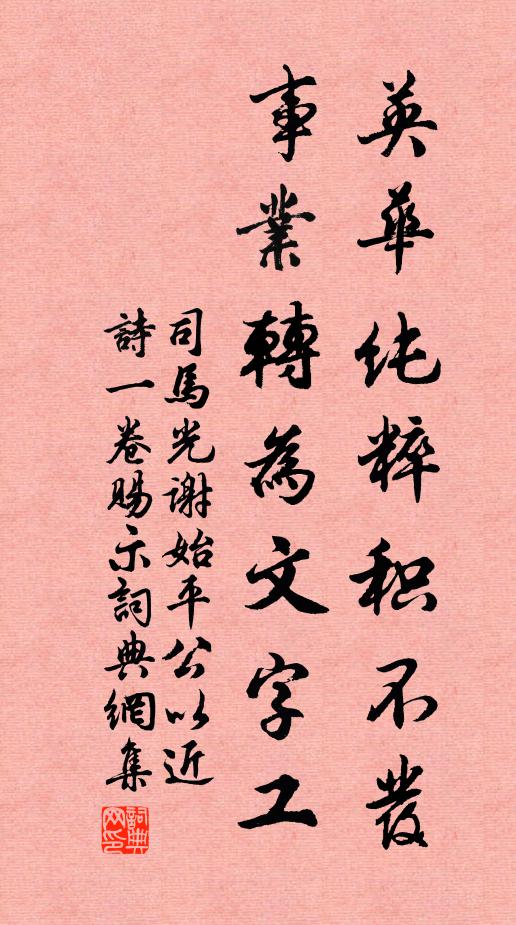 英華纯粹积不發
事業轉為文字工
司馬光謝始平公以近
詩一卷賜示詞典網集
詞典网印